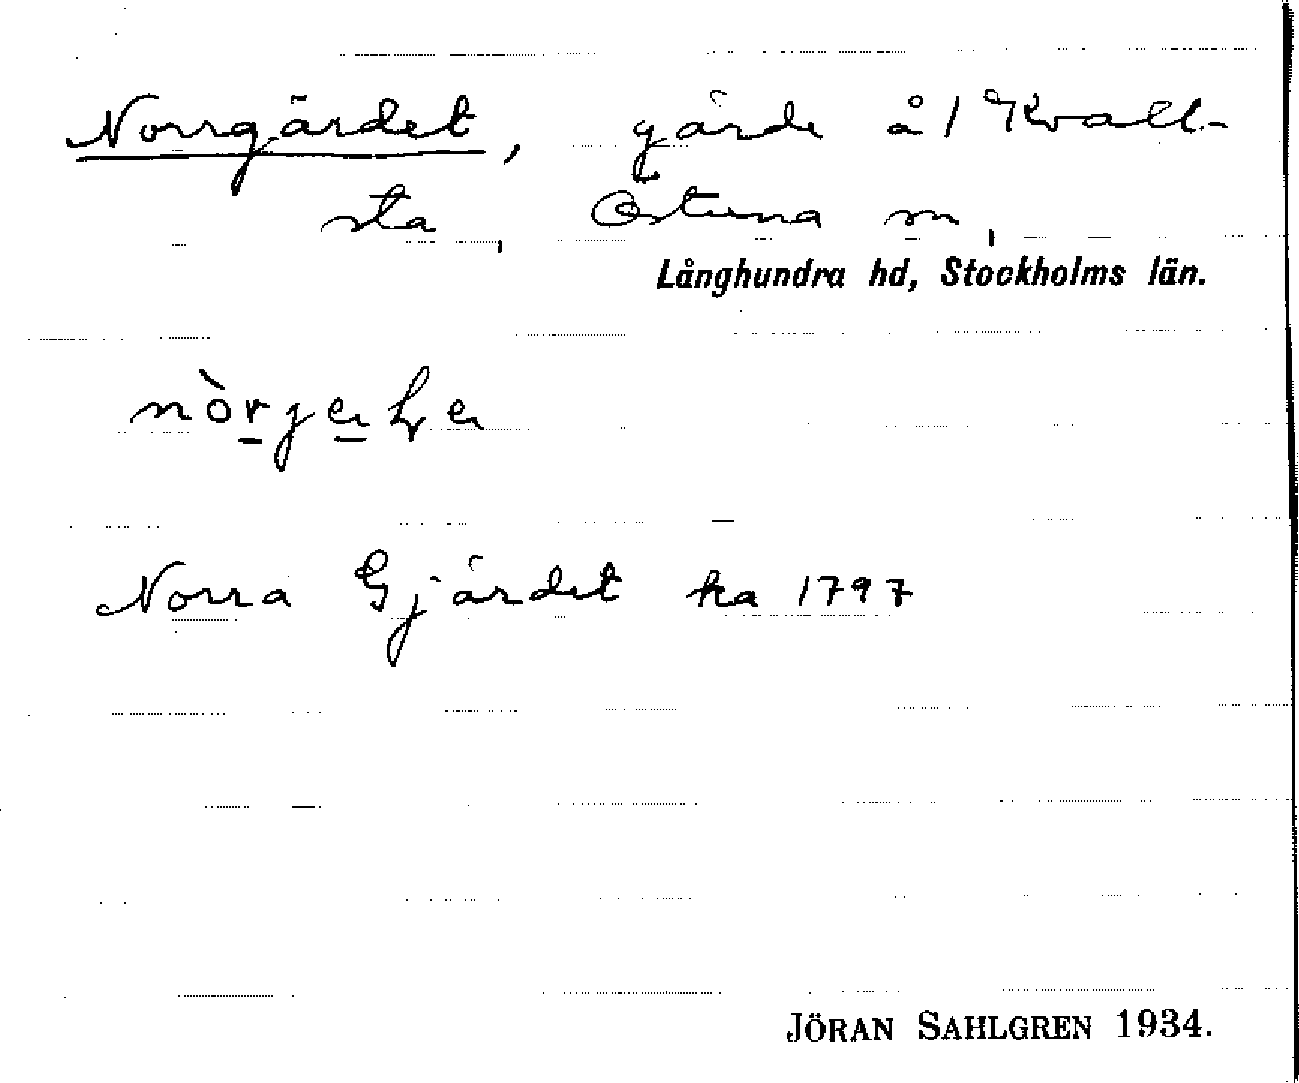 Norrgärdet, gärde å/ Kvall-
sta, Östuna sn,
Långhundra hd, Stockholms län.
Norra Gjärdet ka 1797
JÖRAN SAHLGREN 1934.